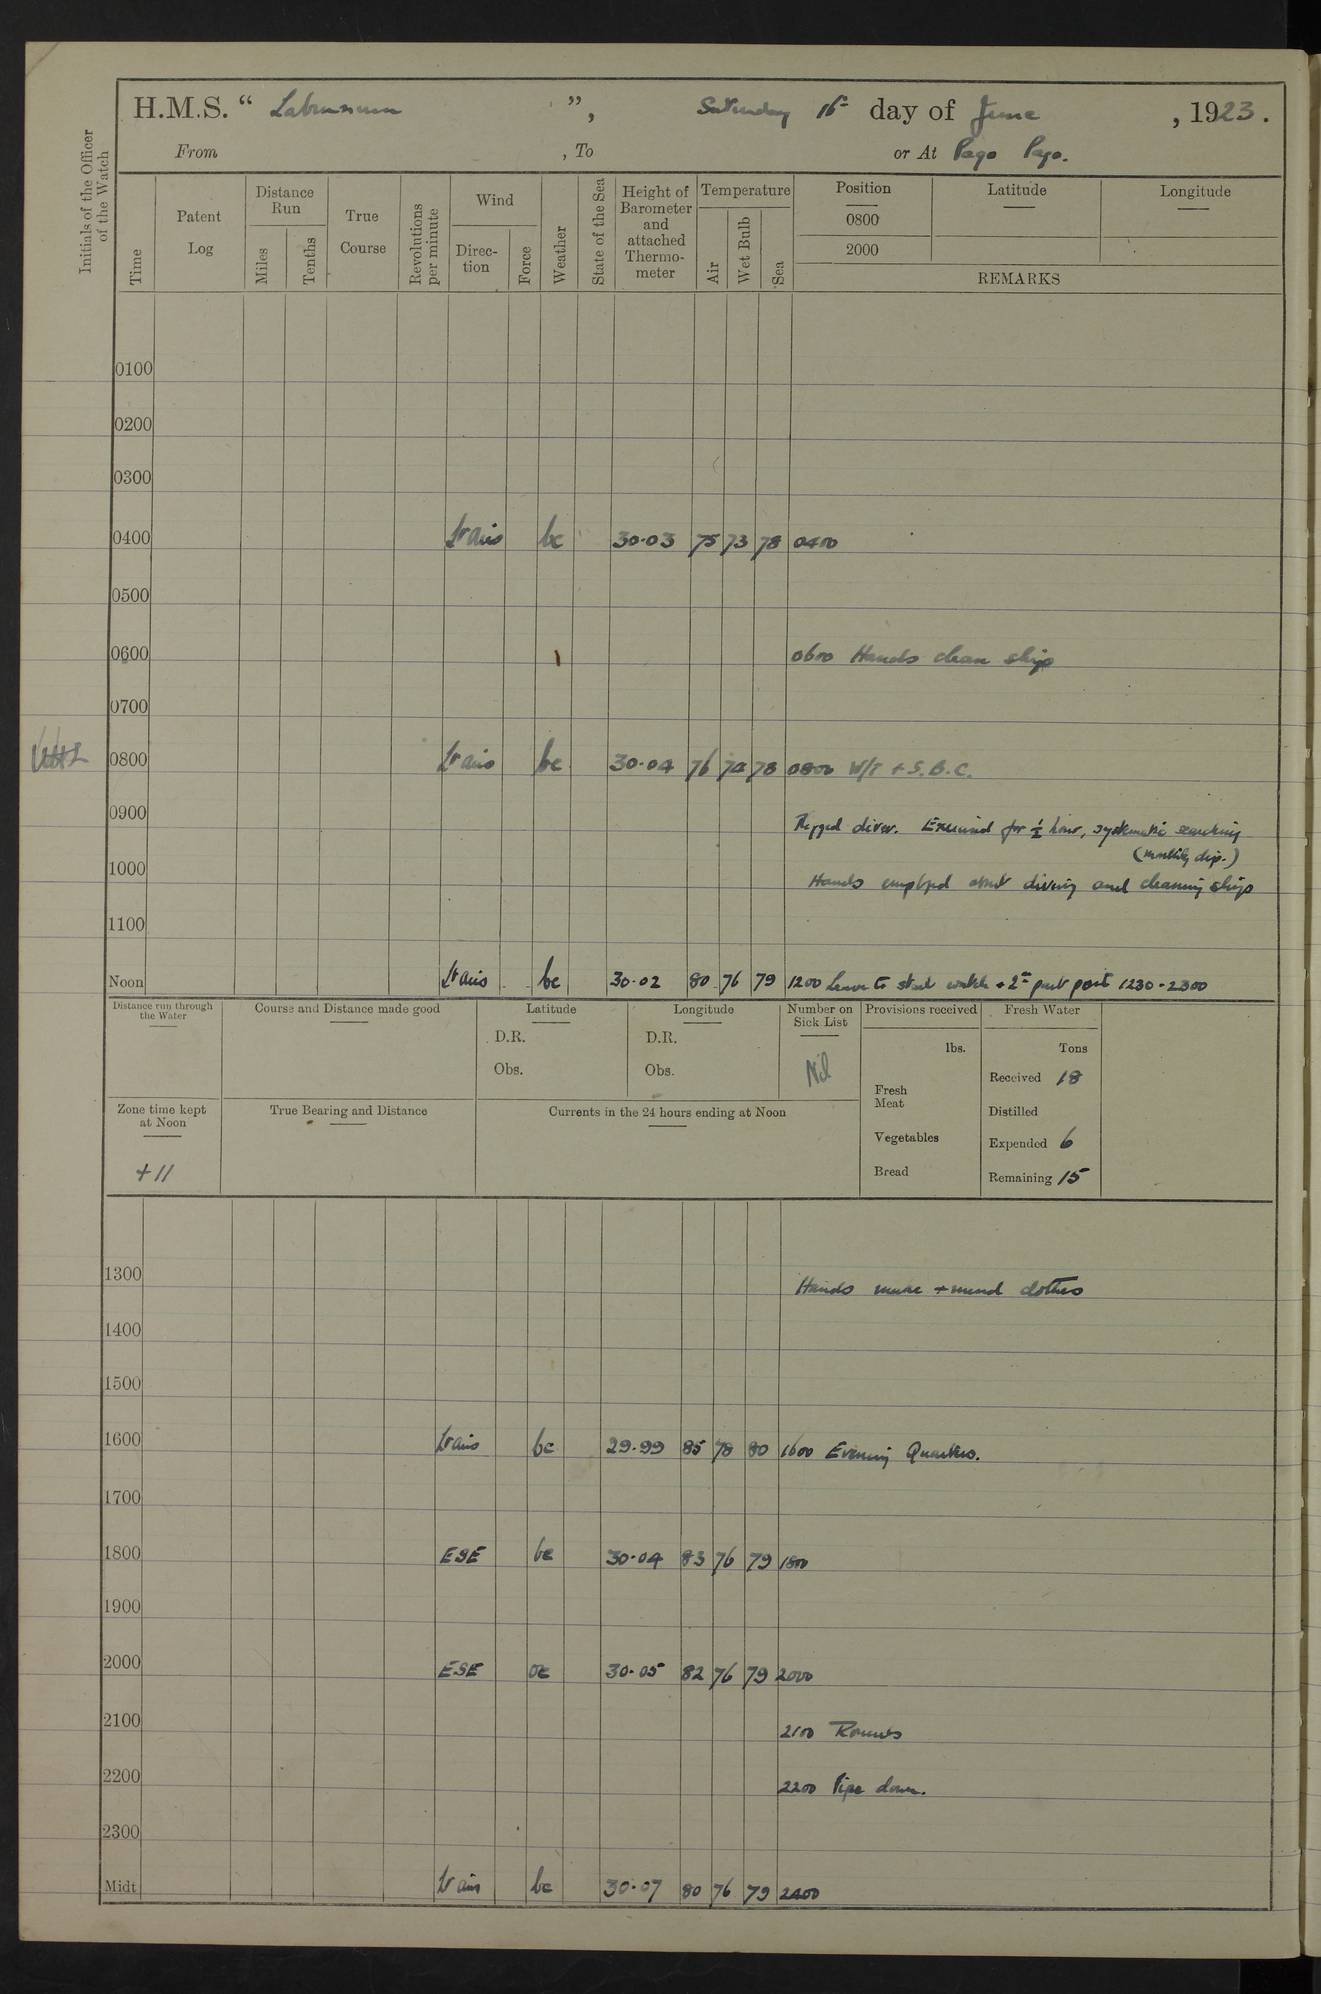 H.M.S. “ Laburnum ”, Saturday 16th day of June, 1923.
From , To or At Pago Pago.
Initials of the Officer of the Watch
Time
Patent Log
Distance Run
Miles
Tenths
True Course
Revolutions per minute
Wind
Direction
Force
Weather
State of the Sea
Height of Barometer and attached Thermometer
Temperature
Air
Wet Bulb
Sea
Position Latitude Longitude
0800
2000
REMARKS
0100
0200
0300
0400 Lt airs bc 30.03 75 73 78 0400
0500
0600 0600 Hands clean ship
0700
0800 Lt airs bc 30.04 76 74 78 0800 W/T + S.B.C.
0900 Rigged diver. Exercised for ½ hour, systematic searching
(monthly dip.)
1000 Hands employed about diving and cleaning ship
1100
Noon Lt airs bc 30.02 80 76 79 1200 Leave to starb watch + 2nd part port 1230-2300
Distance run through the Water
Course and Distance made good
Latitude
D.R.
Obs.
Longitude
D.R.
Obs.
Number on Sick List
Nil
Provisions received
lbs.
Fresh Meat
Vegetables
Bread
Fresh Water
Tons
Received 18
Distilled
Expended 6
Remaining 15
Zone time kept at Noon
+11
True Bearing and Distance
Currents in the 24 hours ending at Noon
1300 Hands make + mend clothes
1400
1500
1600 Lt airs bc 29.99 85 78 80 1600 Evening Quarters.
1700
1800 ESE bc 30.04 83 76 79 1800
1900
2000 ESE oc 30.05 82 76 79 2000
2100 2100 Rounds
2200 2200 Pipe down.
2300
Midt Lt airs bc 30.07 80 76 79 2400